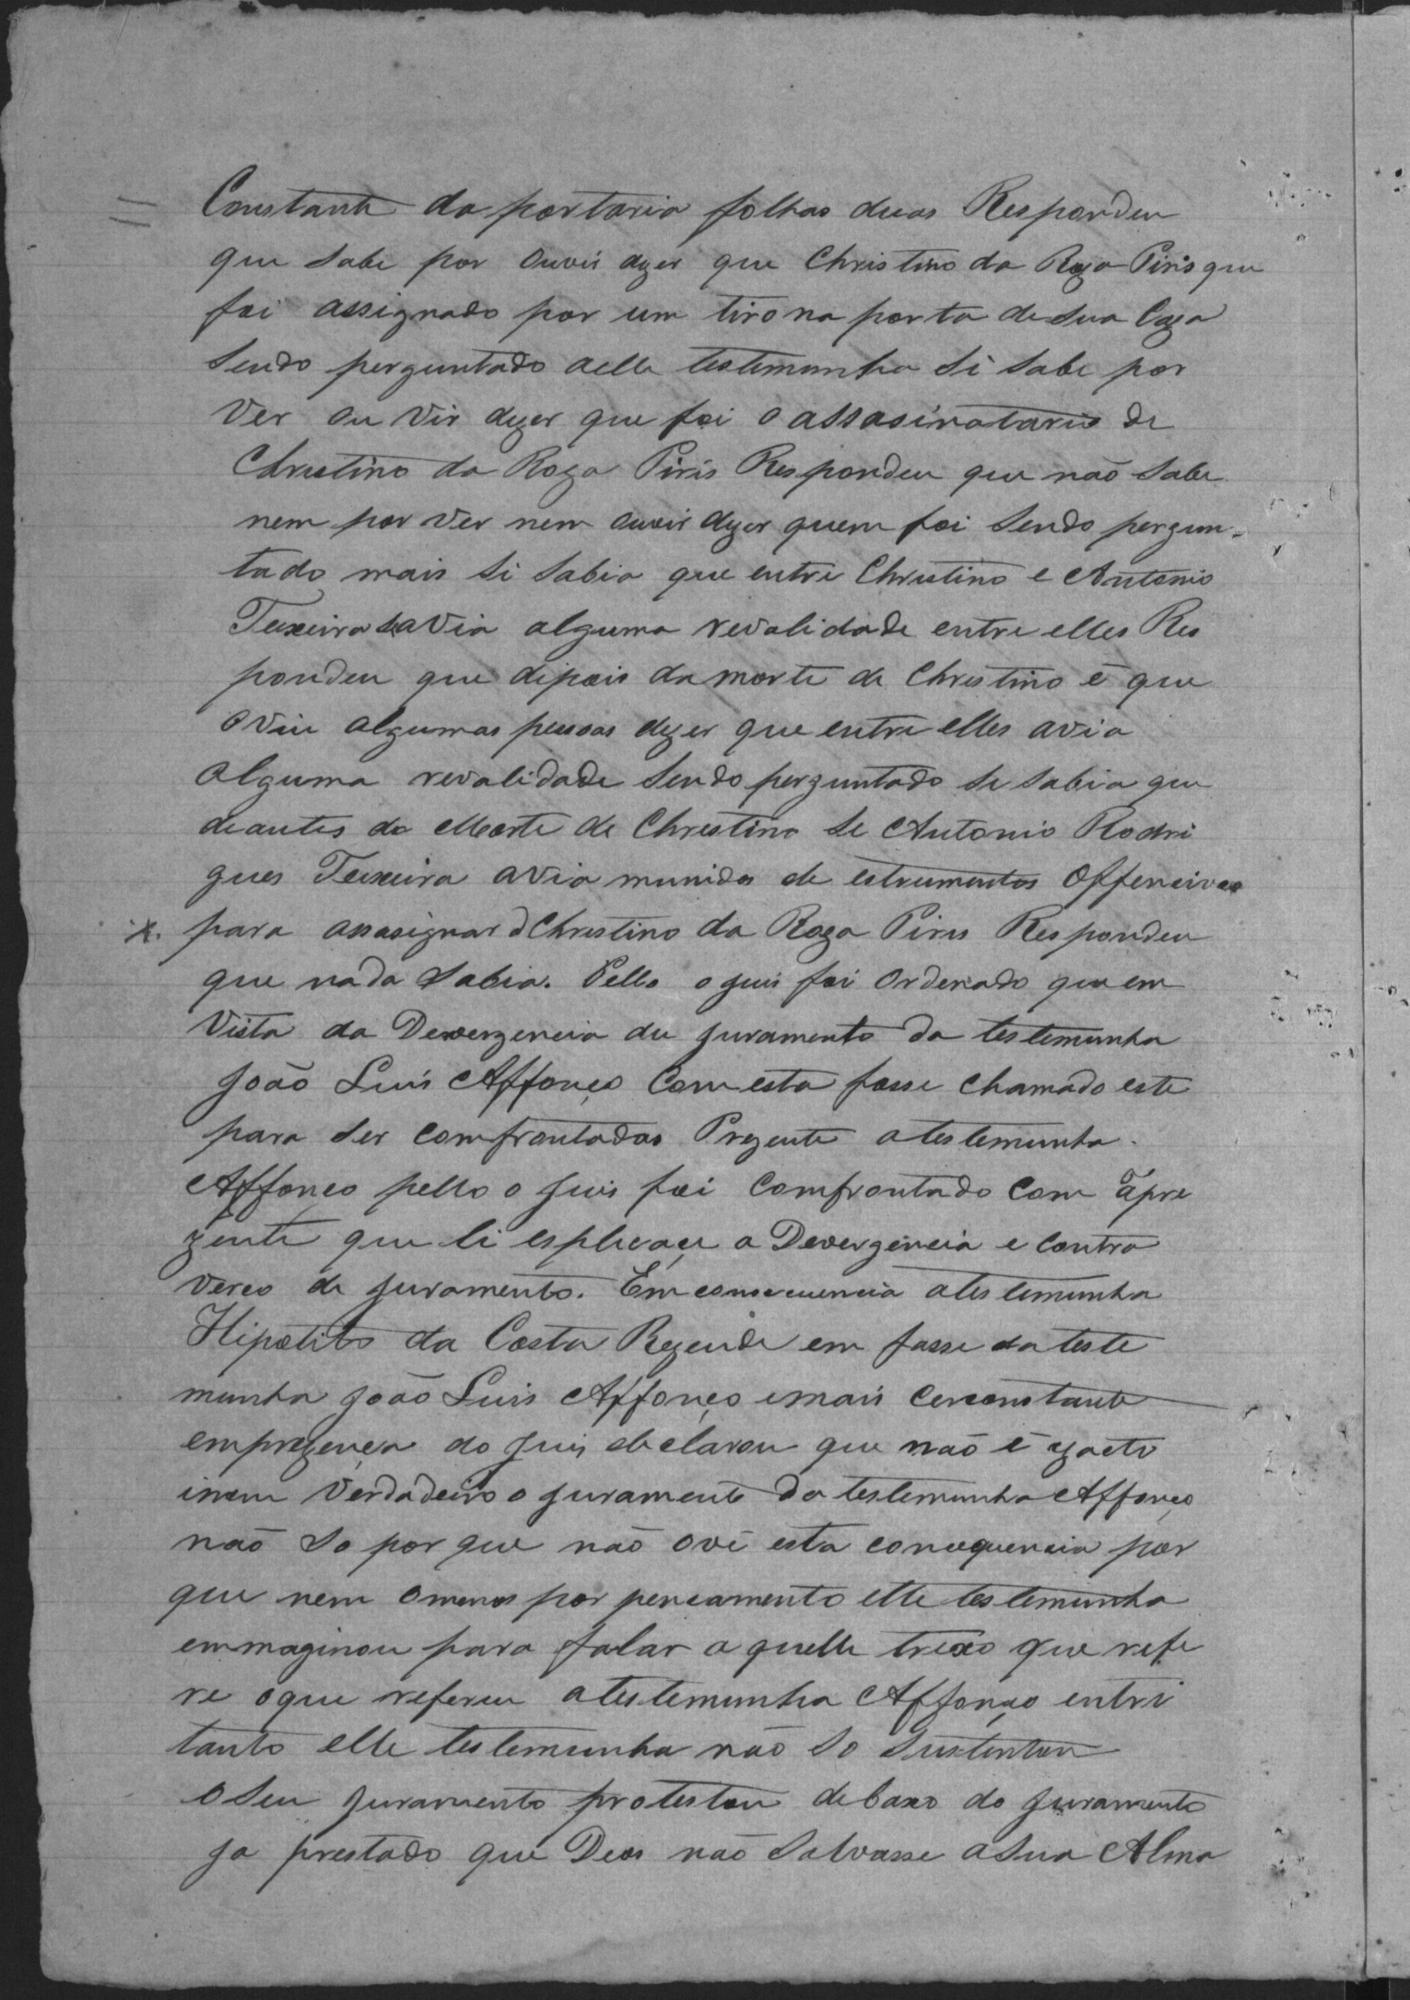 Constante da portaria folhas duas Respondeu
que sabe por ouvir dizer que Christino da Roza Piris que
foi assignado por um tiro na porta de sua Caza
Sendo perguntado aelle testemunha Si Sabe por
Ver ou vir dizer que foi o assasinatario de
Christino da Roza Piris Respondeu que não Sabe
nem por ver nem ouvir dizer quem foi Sendo pergun-
tado mais Si Sabia que entre Christino e Antonio
Teixeira avia alguma revalidade entre elles Res
pondeu que dipois da morte de Christino é que
oviu algumas pessoas dizer que entre elles avia
alguma revalidade Sendo perguntado Se Sabia que
deantes da Morte de Christino Se Antonio Rodri
gues Teixeira avia munidos de estrumentos Offencivos
para assasignar o Christino da Roza Piris Respondeu
que nada Sabia. Pello o juis foi Ordenado que em
Vista da Devergencia du juramento da testemunha
João Luis Affonço Com esta fosse Chamado este
para ser Comfrontadas Prezente a testemunha
Affonço pello o Juis foi Comfrontado Com apre
zente que li esplicaçe a Devergencia e Contra
verço de juramento. Em consecuencia a testemunha
Hipolito da Costa Rezende em fasse da teste
munha João Luis Affonço emais Cerconstante
emprezença do Juis declarou que não é ezacto
inem Verdadeiro o juramento da testemunha Affonço
não So por que não ove esta concequencia por
que nem omenos por pencamento elle testemunha
emmaginou para falar aquelle trexo que refe
re oque refereu atestemunha Affonço entri
tanto elle testemunha não So Sustentou
o Seu juramento protestou debaxo do juramento
ja prestado que Deos não Salvasse a Sua Alma